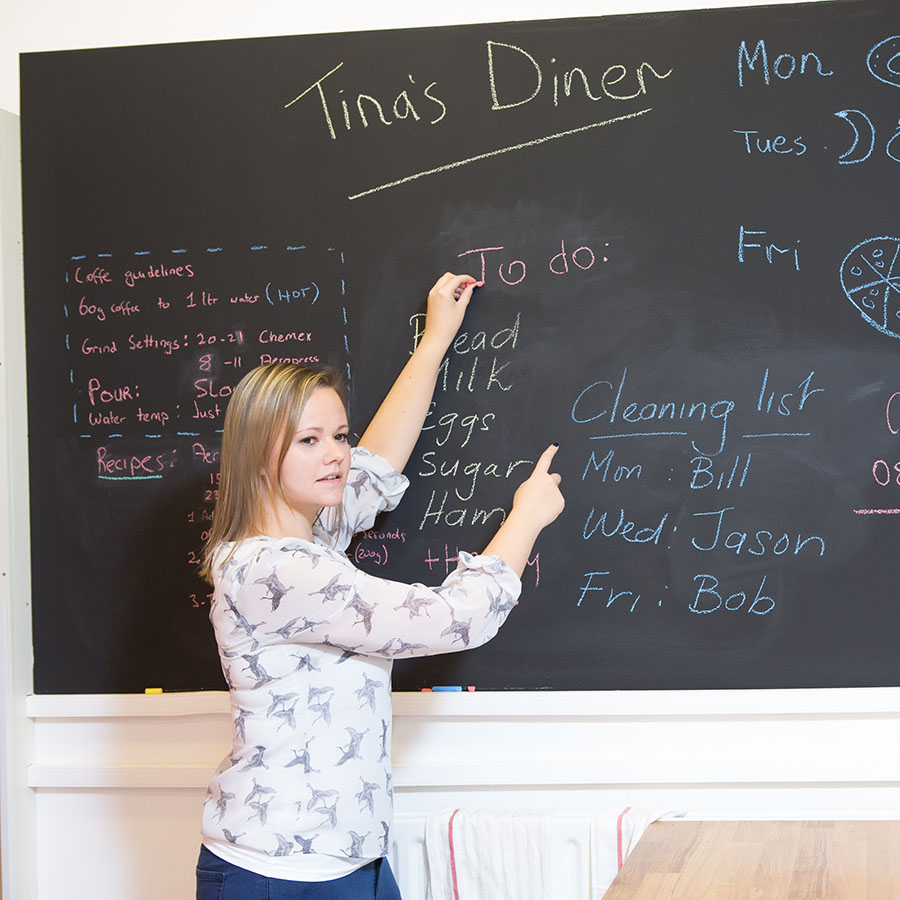 Tina's Diner
Mon
Tues.
Fri
Coffe guidelines
60g coffee to 1 ltr water (HOT)
Grind Settings: 20-21 Chemex
8-11 Aeropress
POUR:
Water temp: Just
Recipes:
To do:
Bread
Milk
Eggs
Sugar
Ham
Cleaning list
Mon: Bill
Wed: Jason
Fri: Bob